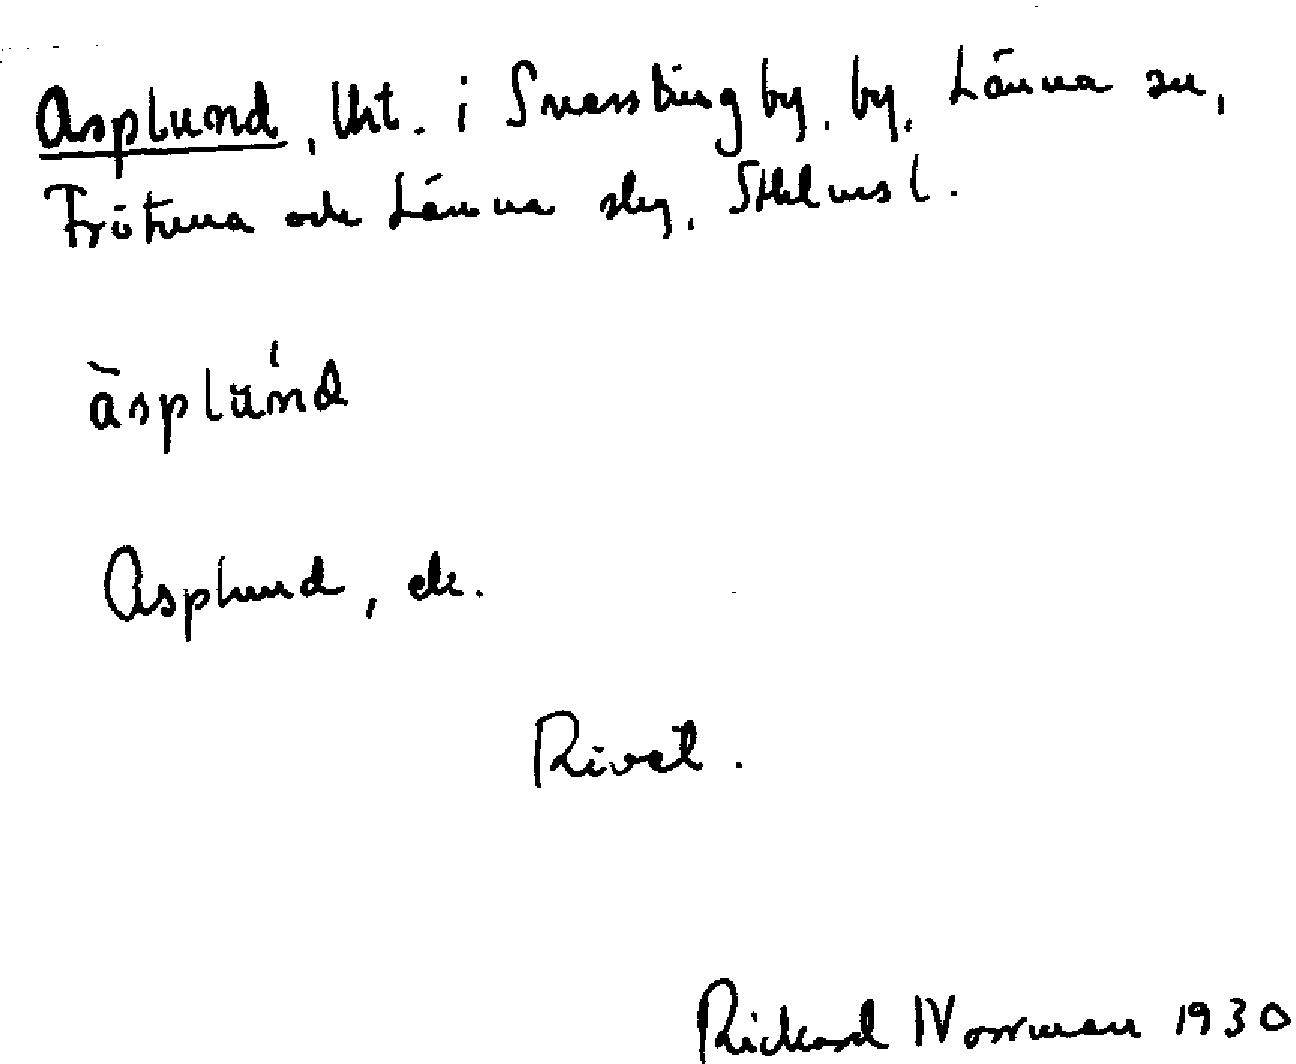 Asplund, lht. i Snesslingby, by, Länna sn,
Frötuna och Länna skg, Sthlms l.
àsplǜnd
Asplund, ek.
Rivet.
Rickard Norrman 1930